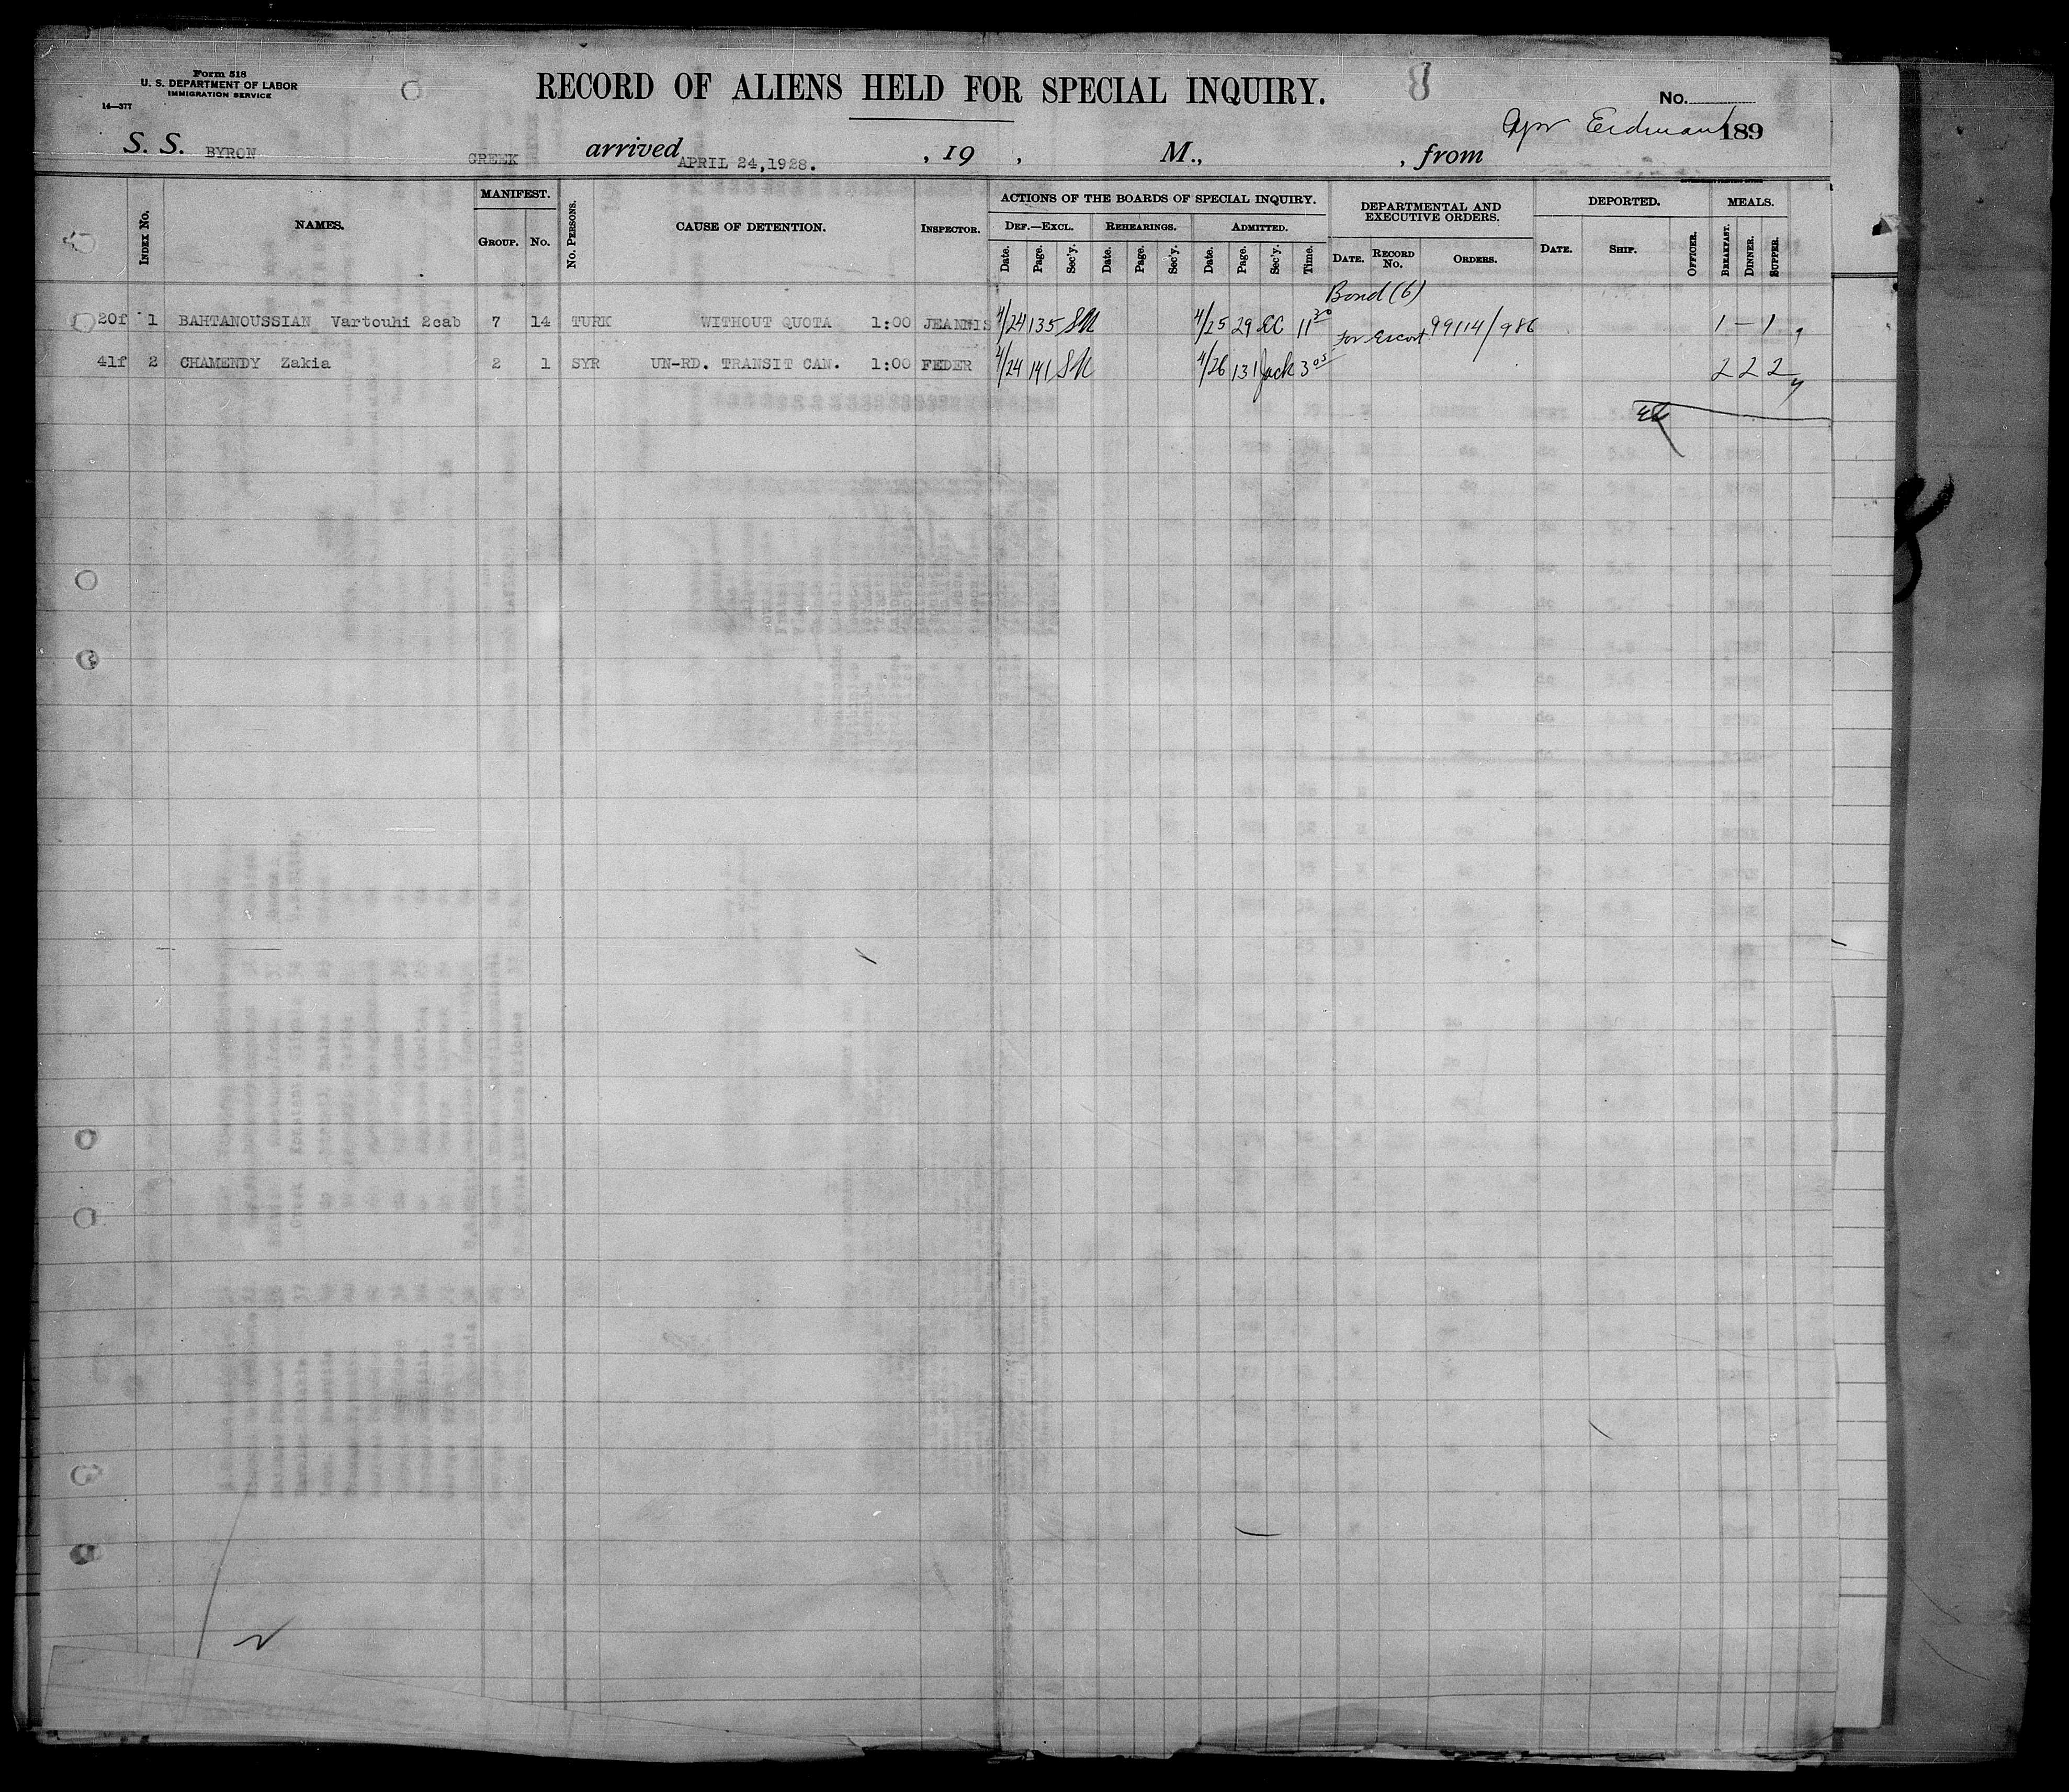 Form 518
U. S. DEPARTMENT OF LABOR
IMMIGRATION SERVICE
14—377
RECORD OF ALIENS HELD FOR SPECIAL INQUIRY.
8
No.
189
S. S. BYRON GREEK arrived APRIL 24, 1928. , 19 , M., , from
INDEX No. NAMES. MANIFEST. GROUP. No. No. PERSONS. CAUSE OF DETENTION. INSPECTOR. ACTIONS OF THE BOARDS OF SPECIAL INQUIRY. DEF.—EXCL. Date. Page. Sec'y. REHEARINGS. Date. Page. Sec'y. ADMITTED. Date. Page. Sec'y. Time. DEPARTMENTAL AND EXECUTIVE ORDERS. DATE. RECORD No. ORDERS. DEPORTED. DATE. SHIP. OFFICER. MEALS. BREAKFAST. DINNER. SUPPER.
Bond (6)
20f 1 BAHTANOUSSIAN Vartouhi 2cab 7 14 TURK WITHOUT QUOTA 1:00 JEANNIS 4/24 135 SM 4/25 29 EC 11 30 For Escort 99114/986 1 – 1
41f 2 CHAMENDY Zakia 2 1 SYR UN-RD. TRANSIT CAN. 1:00 FEDER 4/24 141 SM 4/26 131 Jack 3 05 2 2 2